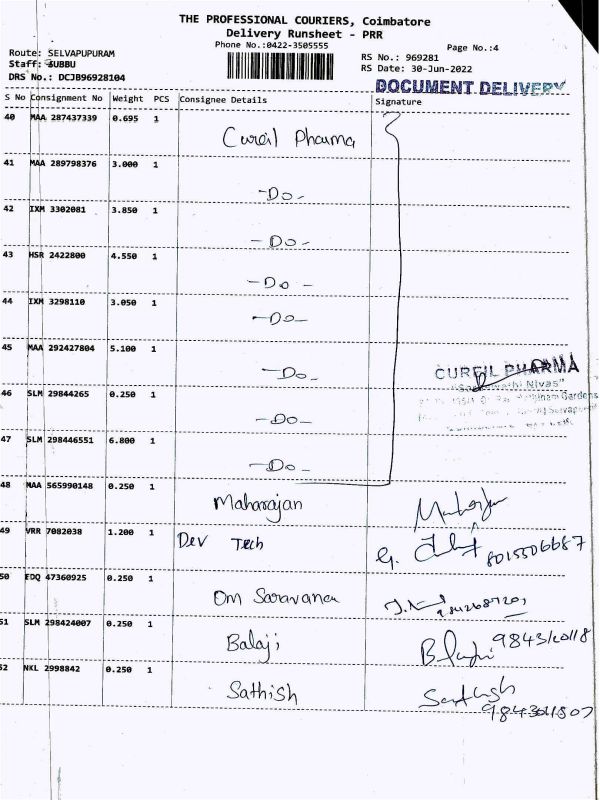 THE PROFESSIONAL COURIERS, Coimbatore
Delivery Runsheet - PRR
Phone No.:0422-3505555
Page No.:4
Route: SELVAPUPURAM
Staff: SUBBU
DRS No.: DCJB96928104
RS No.: 969281
RS Date: 30-Jun-2022
DOCUMENT DELIVERY
S No Consignment No Weight PCS Consignee Details Signature
40 MAA 287437339 0.695 1 Cureil Pharma
41 MAA 289798376 3.000 1 -Do-
42 IXM 3302081 3.850 1 -Do-
43 HSR 2422800 4.550 1 -Do-
44 IXM 3298110 3.050 1 -Do-
45 MAA 292427804 5.100 1 -Do-
CUREIL PHARMA
46 SLM 29844265 0.250 1 -Do-
47 SLM 298446551 6.800 1 -Do-
48 MAA 565990148 0.250 1 Maharajan
49 VRR 7082038 1.200 1 Dev Tech 8015506687
50 EDQ 47360925 0.250 1 Om Saravana
51 SLM 298424007 0.250 1 Balaji
52 NKL 2998842 0.250 1 Sathish